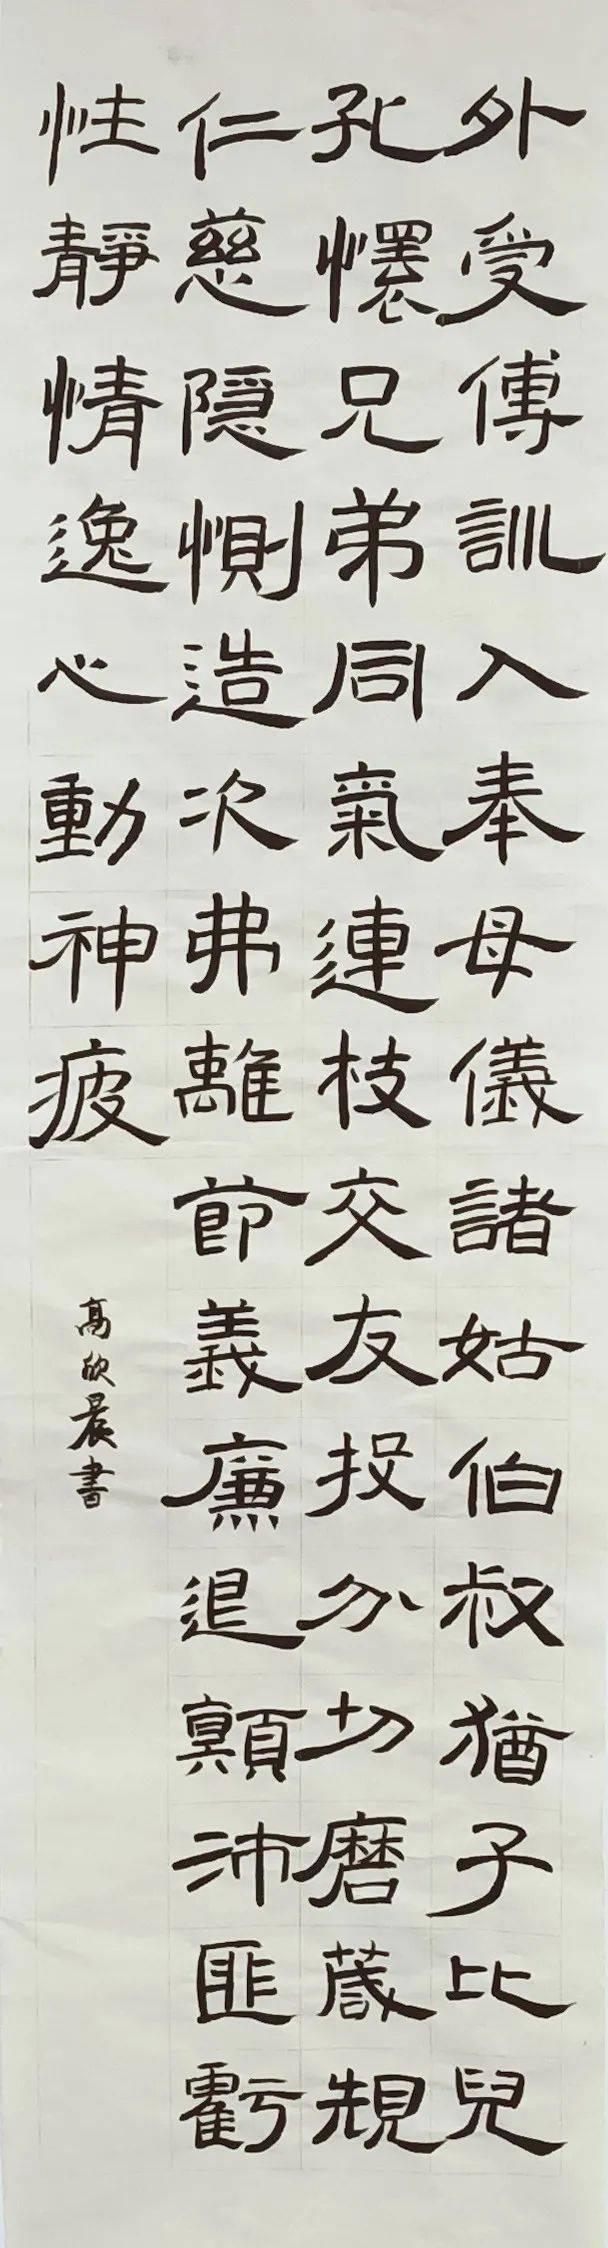 外受傅訓入奉母儀諸姑伯叔猶子比兒
孔懷兄弟同氣連枝交友投分切磨葴規
仁慈隐惻造次弗離節義廉退顛沛匪虧
性靜情逸心動神疲
高欣晨書